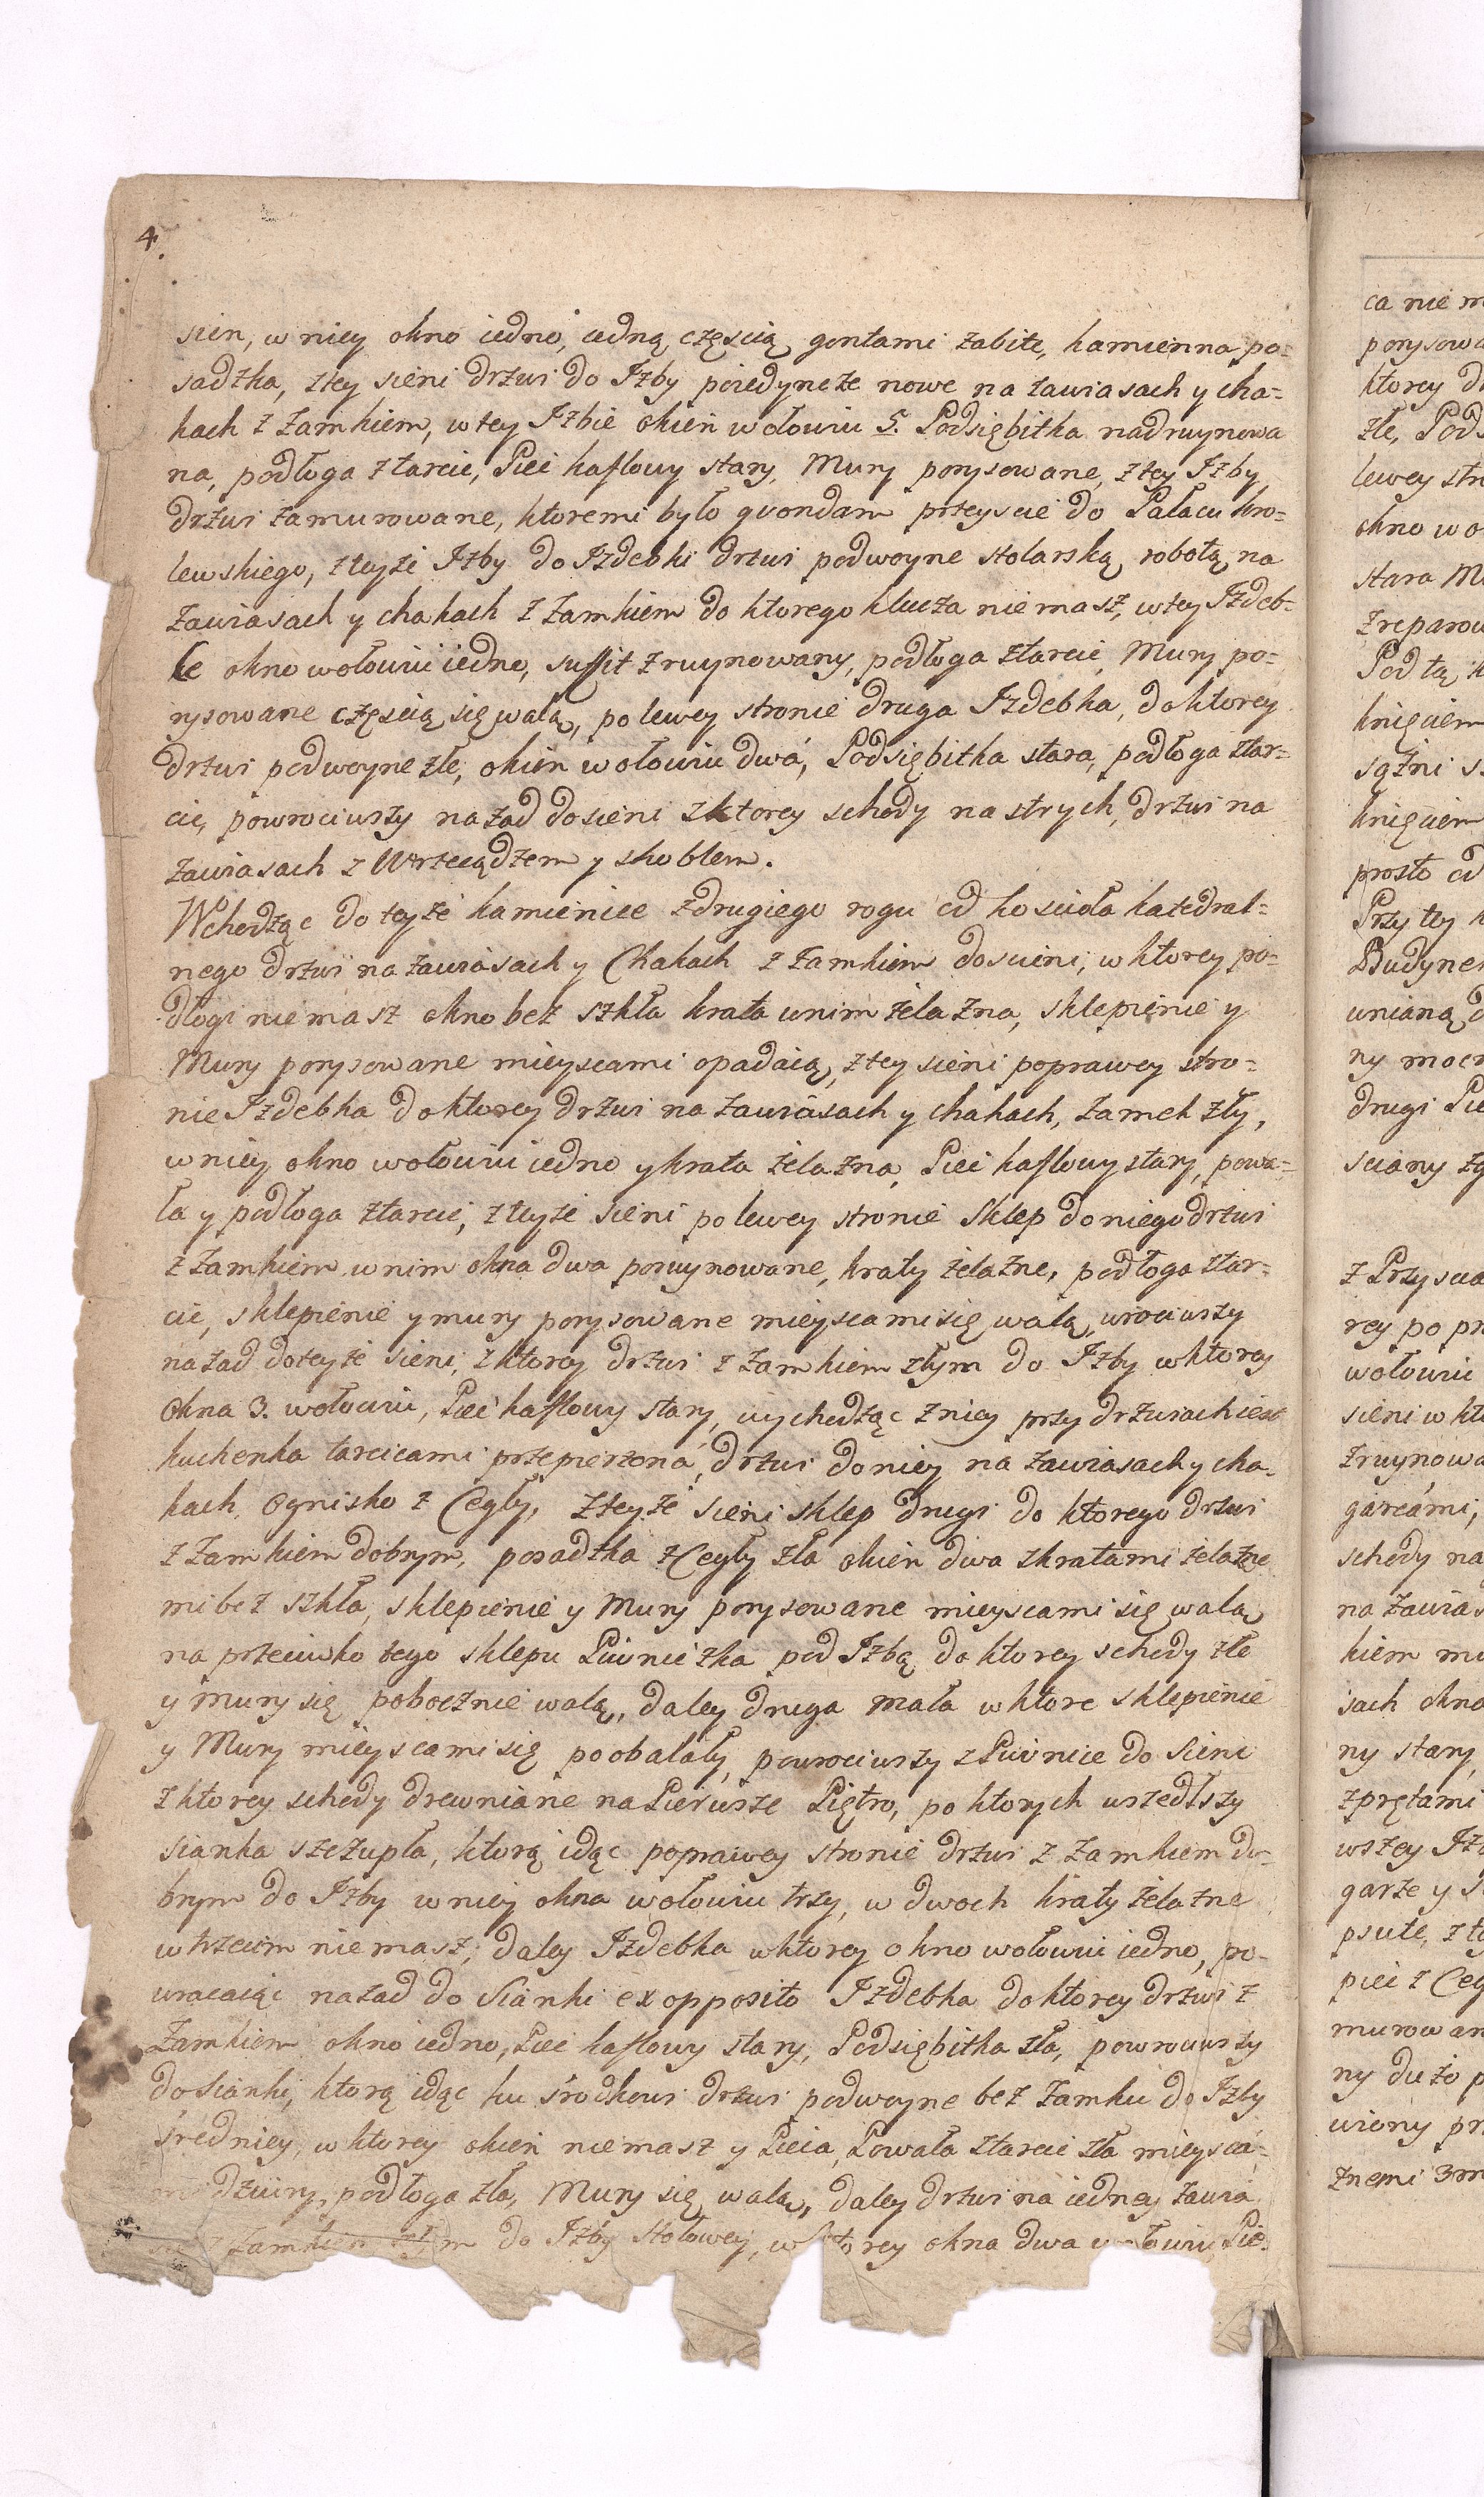 4.
sien, w niey okno iedno, iedną częscią gontami zabite, kamienna po=
sadzka, z tey sieni drzwi do Izby poiedyncze nowe na zawiasach y cha=
kach z zamkiem, w tey Izbie okien w ołowiu 5. Podsiębitka nadruynowa
na, podłoga z tarcic, Piec kaflowy stary, Mury porysowane, z tey Izby
drzwi zamurowane, ktoremi było quondam przeyscie do Pałacu kro=
lewskiego, z teyże Izby do Izdebki drzwi podwoyne stolarską robotą na
zawiasach y chakach z zamkiem do ktorego klucza niemasz, w tey Izdeb=
ce okno w ołowiu iedno, suffit zruynowany, podłoga z tarcic, Mury po=
rysowane częscią się walą, po lewey stronie druga Izdebka, do ktorey
drzwi podwoyne złe, okien w ołowiu dwá, Podsiębitka stara, podłoga z tar=
cic, powrociwszy nazad do sieni z ktorey schody na strych, drzwi na
zawiasach z Wrzeciądzem y skoblem.
Wchodząc do teyże kamienice z drugiego rogu od koscioła katedral=
nego drzwi na zawiasach y Chakach z zamkiem do sieni, w ktorey po=
dłogi niemasz okno bez szkła krata w nim żelazna, sklepienie y
Mury porysowane mieyscami opadaią, z tey sieni po prawey stro=
nie Izdebka do ktorey drzwi na zawiasach y chakach, zamek zły,
w niey okno w ołowiu iedno y krata żelazna, Piec kaflowy stary, powa=
ła y podłoga z tarcic, z teyże sieni po lewey stronie Sklep do niego drzwi
z zamkiem w nim okna dwa poruynowane, kraty żelazne, podłoga z tar=
cic, sklepienie y mury porysowane mieyscami się walą, wrociwszy
nazad do teyże sieni, z ktorey drzwi z zamkiem złym do Izby w ktorey
Okna 3. w ołowiu, Piec kaflowy stary, wychodząc z niey przy drzwiach iest
kuchenka tarcicami przepierzoná, drzwi do niey na zawiasach y cha=
kach, Ognisko z Cegły, z teyże sieni sklep drugi do ktorego drzwi
z zamkiem dobrym, posadzka z Cegły zła okien dwa z kratami żelazne
mi bez szkła, sklepienie y Mury porysowane mieyscami się walą
na przeciwko tego sklepu Piwniczka pod Izbą do ktorey schody złe
y mury się pobocznie walą, daley druga mała w ktore sklepienie
y Mury mieyscami się poobalały, powrociwszy z Piwnice do Sieni
z ktorey schody drewniane na Pierwsze Piętro, po ktorych wszedłszy
sianka szczupła, ktorą idąc po prawey stronie drzwi z zamkiem do=
brym do Izby w niey okna w ołowiu trzy, w dwoch kraty żelazne
w trzecim niemasz, daley Izdebka w ktorey okno w ołowiu iedno, po=
wracaiąc nazad do Sianki ex opposito Izdebka do ktorey drzwi z
zamkiem okno iedno, Piec kaflowy stary, Podsiębitka zła, powrociwszy
do Sianki, ktorą idąc ku środkowi drzwi podwoyne bez zamku do Izby
średniey, w ktorey okien niemasz y Pieca, Powała z tarcic zła mieysca=
mi dziury, podłoga zła, Mury się walą, daley drzwi na iedney zawia
z zamkiem do Izby stołowey, w ktorey okna dwa w ołowiu, Pie
ca nie m
porysowa
ktorey
złe, Pods
lewey str
okno w o
stara M
zreparow
Pod tą
sążni
prosto od
Przy tey
Budynek
ny
drugi Pie
sciany
z Przyscia
rey po pr
w ołowiu
sieni w kt
zruynowa
schody na
na zawias
kiem
sach okno
ny stary,
z prętami
wszey Iz
psute, z
piec z Ceg
murowan
ny dużo p
wiony pr